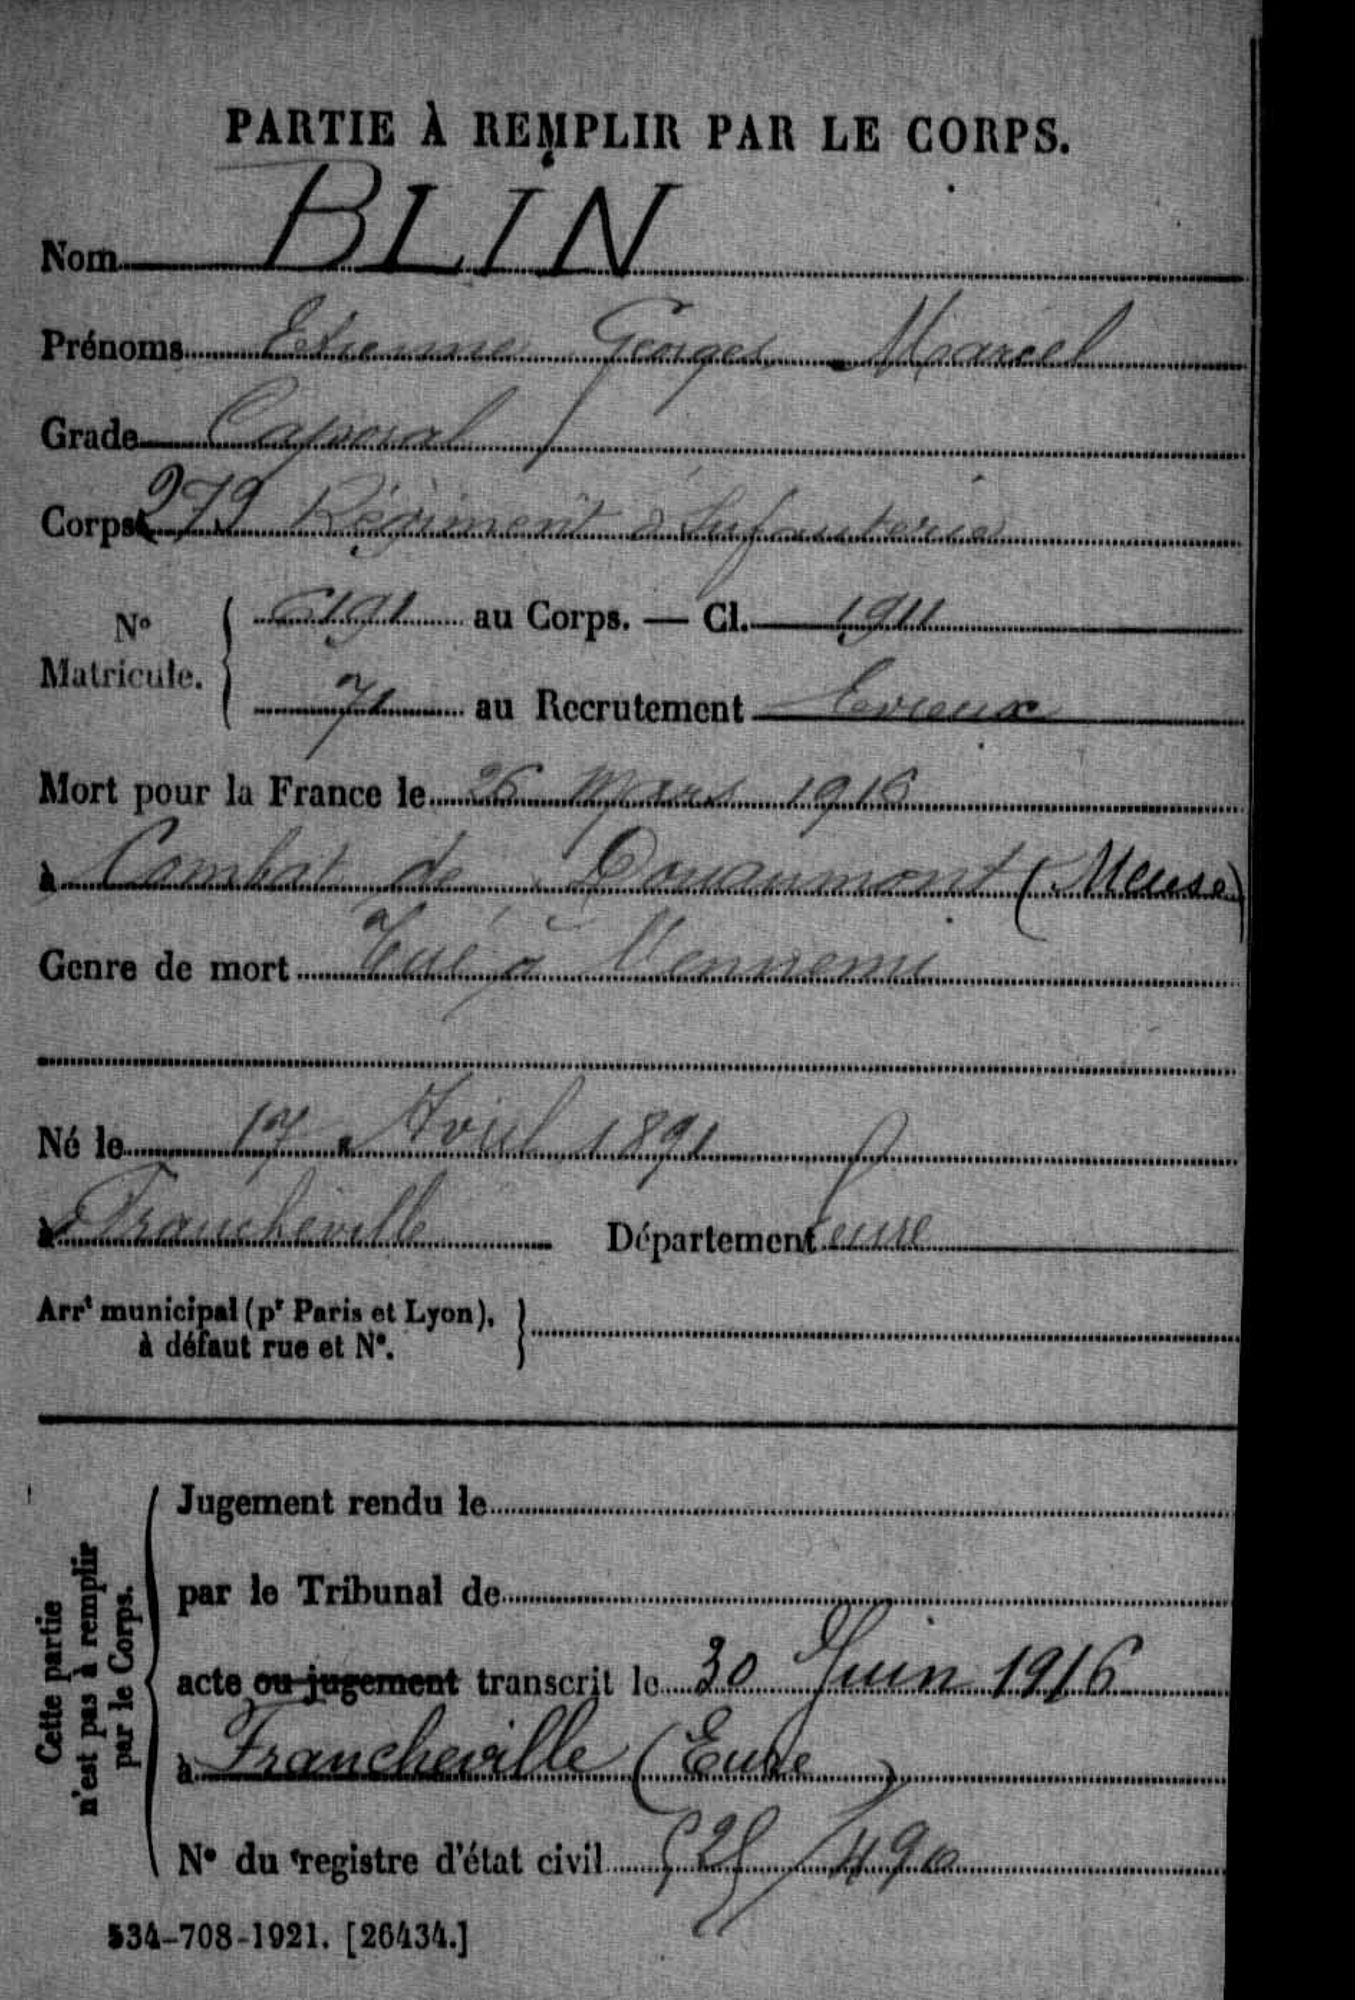 PARTIE À REMPLIR PAR LE CORPS.
Nom BLIN
Prénoms Etienne Georges Marcel
Grade Caporal
Corps 279 Régiment d'Infanterie
No Matricule. { 6191 au Corps. — Cl. 1911
71 au Recrutement Evreux
Mort pour la France le 26 Mars 1916
à Combat de Douaumont (Meuse)
Genre de mort Tué à l'ennemi
Né le 17 Avril 1891
à Francheville Département Eure
Arrt municipal (pr Paris et Lyon), }
à défaut rue et N°.
Cette partie
n'est pas à remplir
par le Corps.
Jugement rendu le
par le Tribunal de
acte ou jugement transcrit le 30 Juin 1916
à Francheville (Eure)
N° du registre d'état civil
534-708-1921. [26434.]